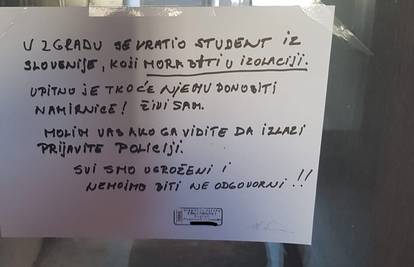 U ZGRADU SE VRATIO STUDENT IZ
SLOVENIJE, KOJI MORA BITI U IZOLACIJI.
UPITNO JE TKO ĆE NJEMU DONOSITI
NAMIRNICE! ŽIVI SAM.
MOLIM VAS AKO GA VIDITE DA IZLAZI
PRIJAVITE POLICIJI.
SVI SMO UGROŽENI I
NEMOJMO BITI NE ODGOVORNI !!